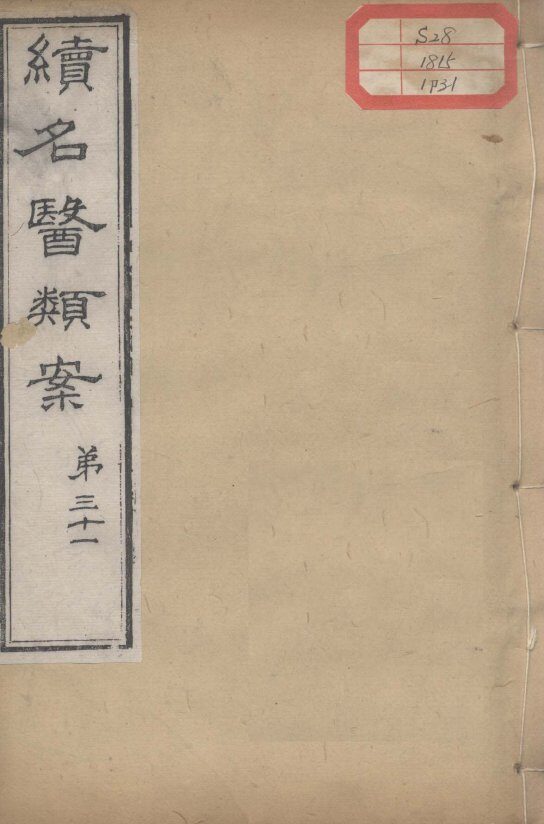 續名醫類案
弟三十一
S28
1815
1P31